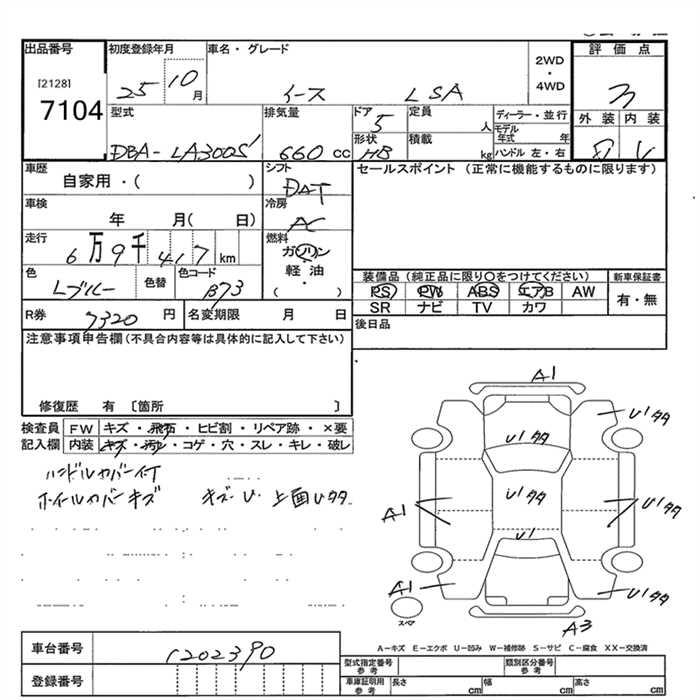 出品番号 初度登録年月 車名・グレード 評価点
[2128] 25 10月 イース LSA 2WD・4WD 3
7104
型式 排気量 ドア 定員 ディーラー・並行 外装 内装
5 人 モデル年式 年
DBA-LA300S 660cc 形状 HB 積載 kg ハンドル 左・右
車歴 シフト セールスポイント (正常に機能するものに限ります)
自家用・( ) DAT
車検 冷房
年 月( 日) AC
走行 燃料
6万9千417km ガソリン
色 色替 色コード 軽油
Lブルー B73 ・( )
装備品(純正品に限り○をつけてください) 新車保証書
PS PW ABS エアB AW 有・無
SR ナビ TV カワ
R券 7320円 名変期限 月 日 後日品
注意事項申告欄(不具合内容等は具体的に記入して下さい)
修復歴 有 〔箇所 〕
検査員 FW キズ・飛石・ヒビ割・リペア跡・×要
記入欄 内装 キズ・汚れ・コゲ・穴・スレ・キレ・破レ
ハンドルカバー付
ホイールカバーキズ キズ・U・上画Uタタ
A1
U1タタ U1タタ
A1 U1タタ U1タタ
U1
A1 U1タタ
スペア A3
A-キズ E-エクボ U-凹み W-補修跡 S-サビ C-腐食 XX-交換済
車台番号 1202390
登録番号
型式指定番号 参考 類別区分番号 参考
車庫証明用 参考 長さ cm 幅 cm 高さ cm